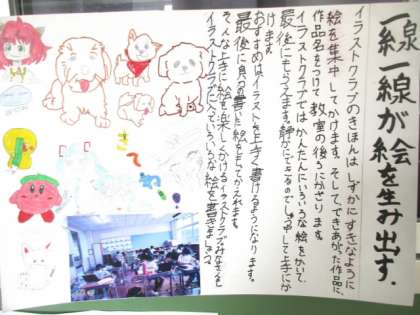 一線一線が絵を生み出す。
イラストクラブのきほんは、しずかにすきなように
絵を集中してかけます。そして、できあがった作品に、
作品名をつけて教室の後ろにかざります。
イラストクラブではかんたんにいろいろな絵をかいて、
最後にもらえます。静かにできるのでしゅう中して上手にか
けます。
おすすめは、イラストを上手く書けるようになります。
最後に自分の書いた絵をもってかえれます。
そんな上手に絵を楽しくかけるイラストクラブみなさんも
イラストクラブに入っていろいろな絵を書きましょう。